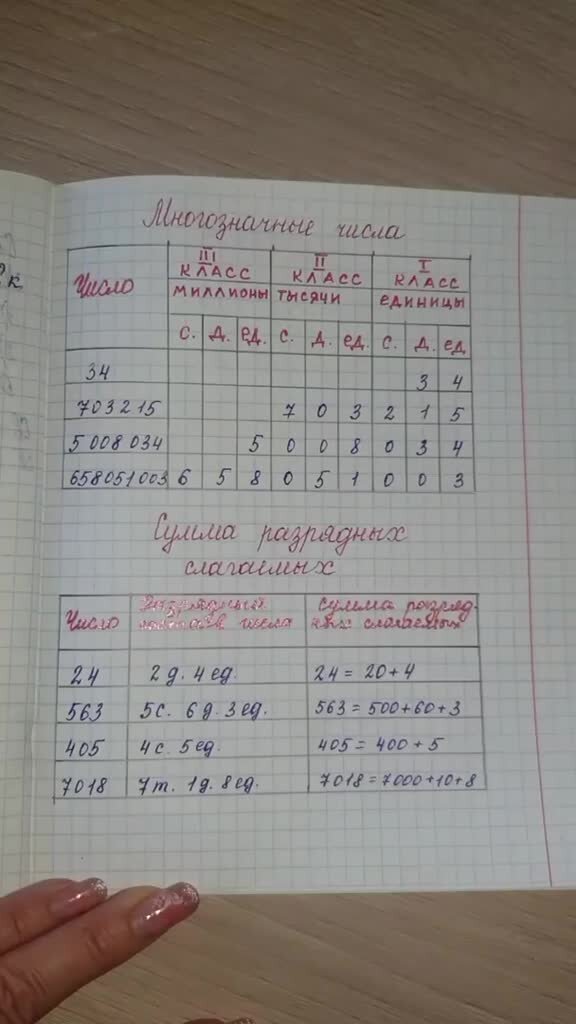 Многозначные числа
Число III класс II класс I класс
миллионы тысячи единицы
с. д. ед. с. д. ед. с. д. ед
34 3 4
703215 7 0 3 2 1 5
5008034 5 0 0 8 0 3 4
658051003 6 5 8 0 5 1 0 0 3
Сумма разрядных
слагаемых
Число Разрядный состав числа Сумма разряд-
ных слагаемых
24 2 д. 4 ед. 24 = 20 + 4
563 5с. 6 д. 3 ед. 563 = 500 + 60 + 3
405 4 с. 5 ед. 405 = 400 + 5
7018 7 т. 1 д. 8 ед. 7018 = 7000 + 10 + 8